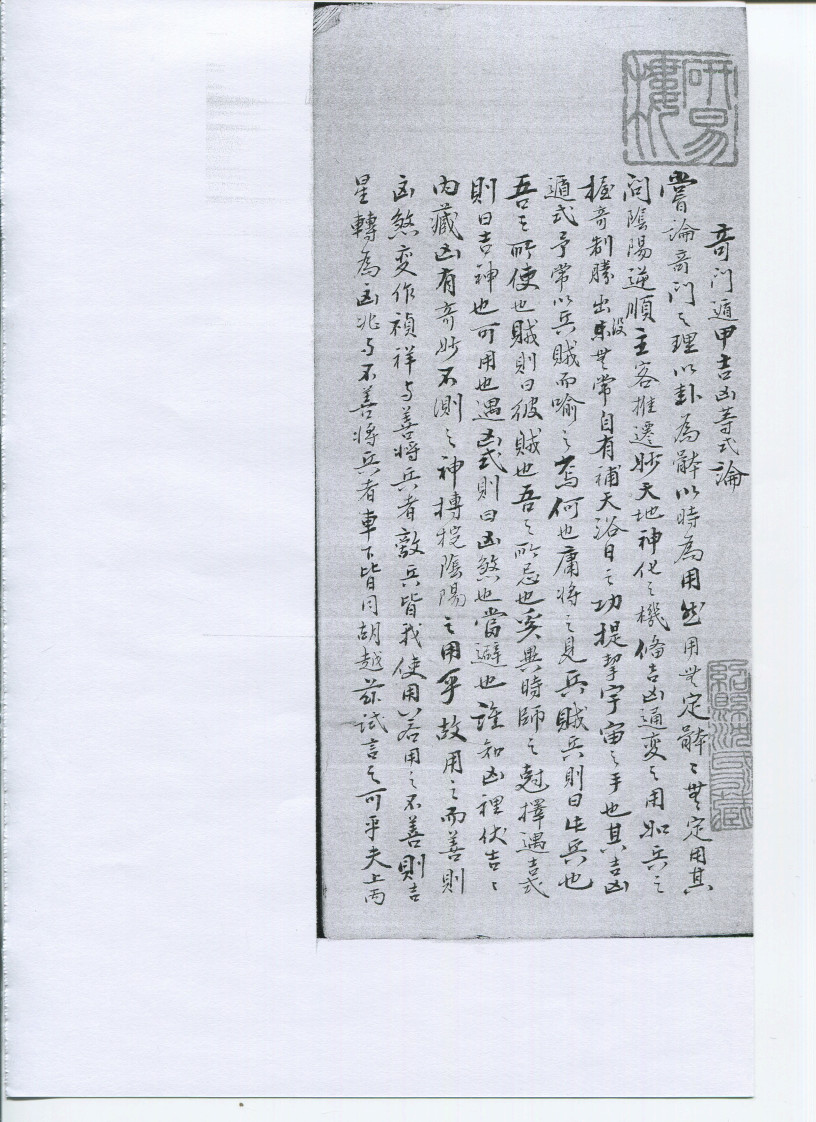 研易樓
奇门遁甲吉凶等式論
嘗論奇门之理以卦為骵以時為用然用無定骵〻無定用其
间陰陽逆順主客推遷妙天地神化之機偹吉凶通變之用如兵之
握奇制勝出沒無常自有補天浴日之功提挈宇宙之手也其吉凶
遁式予常以兵賊而喻之焉何也庸将之見兵賊兵則曰此兵也
吾之所使也賊則曰彼賊也吾之所忌也奚異時師之尅擇遇吉式
則曰吉神也可用也遇凶式則曰凶煞也當避也誰知凶裡伏吉〻
内藏凶有奇妙不測之神摶捖陰陽之用乎故用之而善則
凶煞变作禎祥与善将兵者敵兵皆我使用若用之不善則吉
星轉為凶兆与不善将兵者車下皆同胡越茲試言之可乎夫上丙